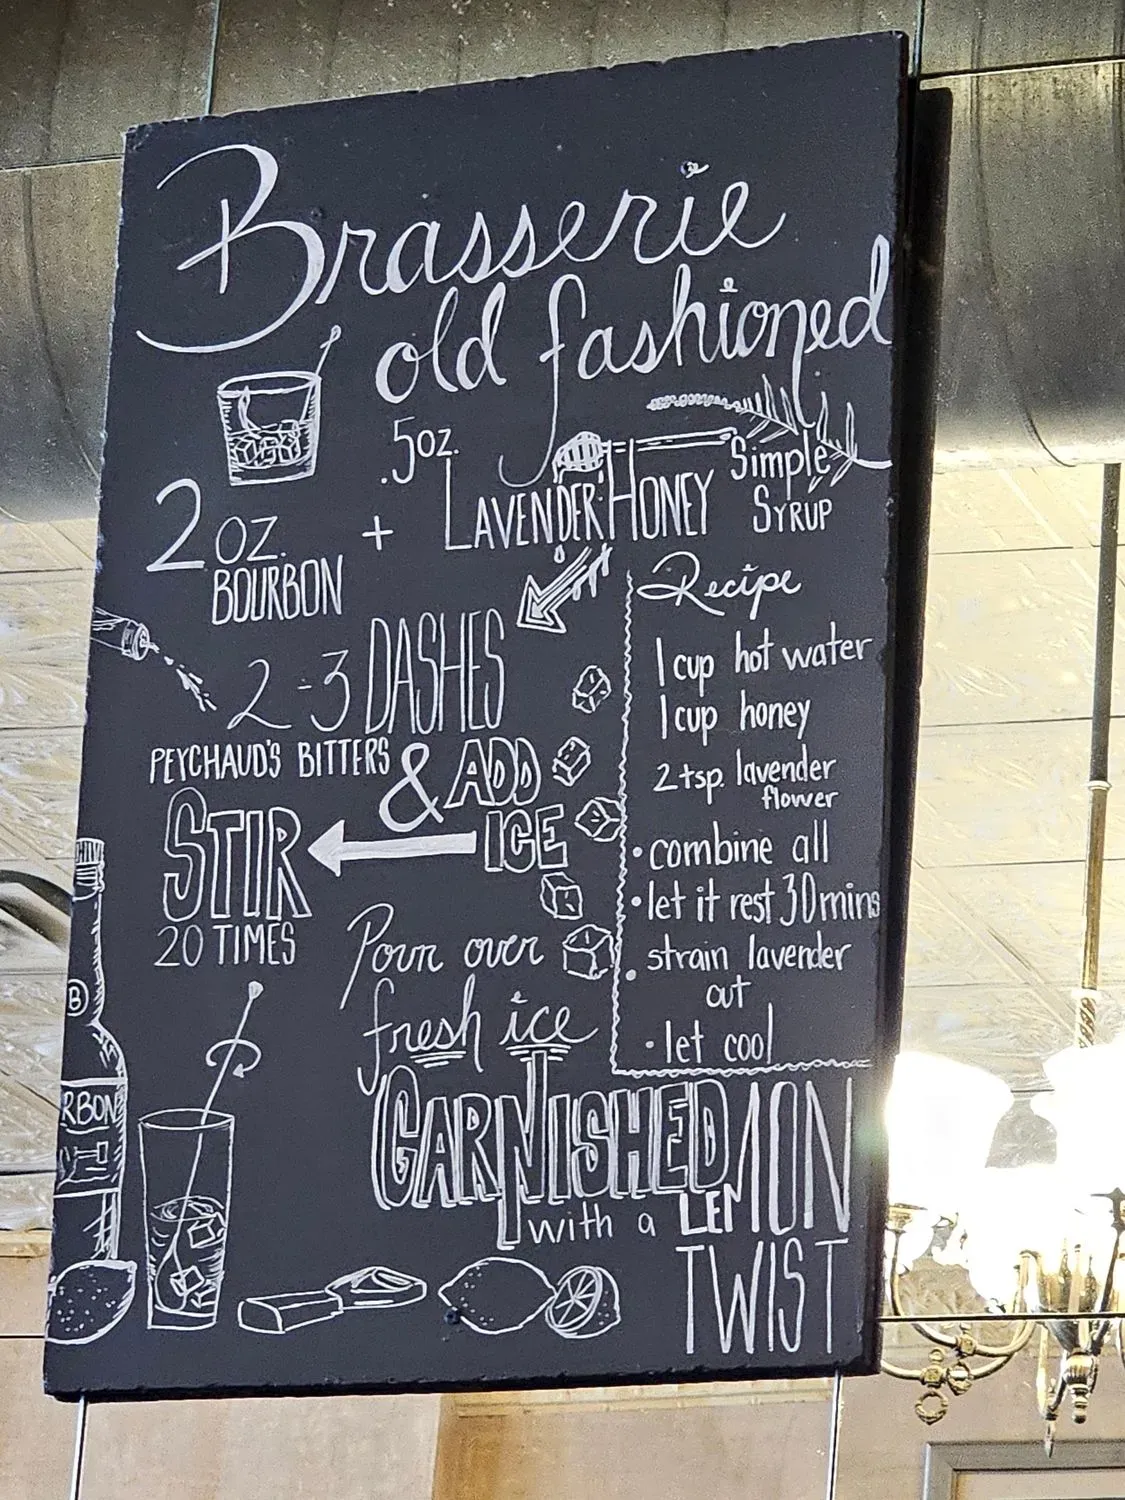 Brasserie
old fashioned
2 oz.
BOURBON
+
.5oz.
LAVENDER HONEY
Simple
SYRUP
2-3 DASHES
PEYCHAUD'S BITTERS
& ADD
ICE
STIR
20 TIMES
Pour over
fresh ice
GARNISHED
with a LEMON
TWIST
Recipe
1 cup hot water
1 cup honey
2 tsp. lavender
flower
• combine all
• let it rest 30 mins
• strain lavender
out
• let cool
B
RBON